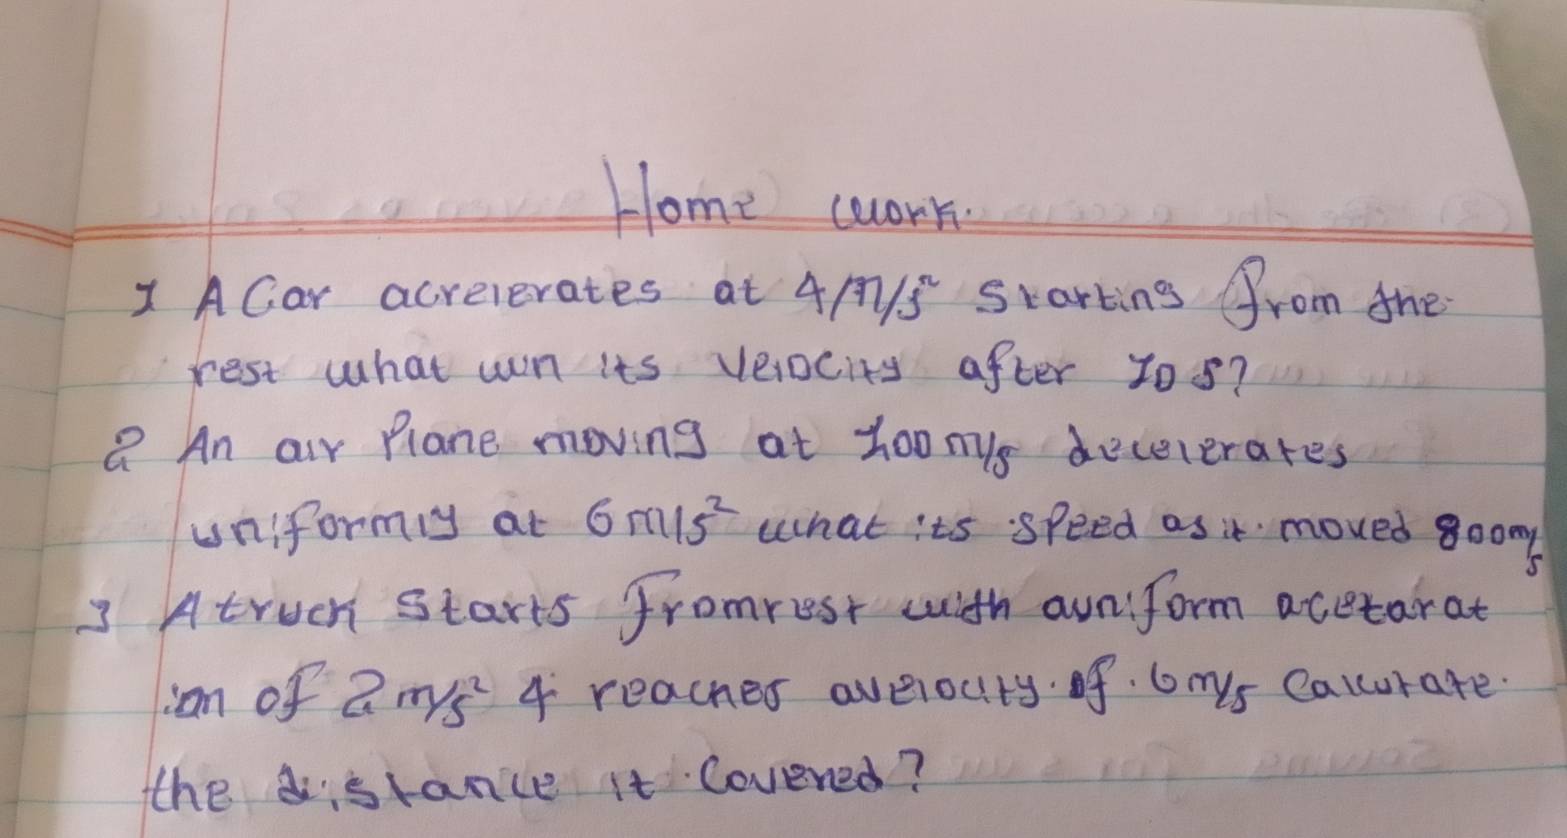 Home work.
1 A Car accelerates at 4m/s² starting from the
rest what win its velocity after 10 s?
2 An air Plane moving at 100 m/s decelerates
uniformly at 6m/s² what its speed as it moved 800m/s
3 A truck starts from rest with a uniform accetarat
ion of 2m/s² & reaches a velocity of 6m/s Calculate
the distance it covered?